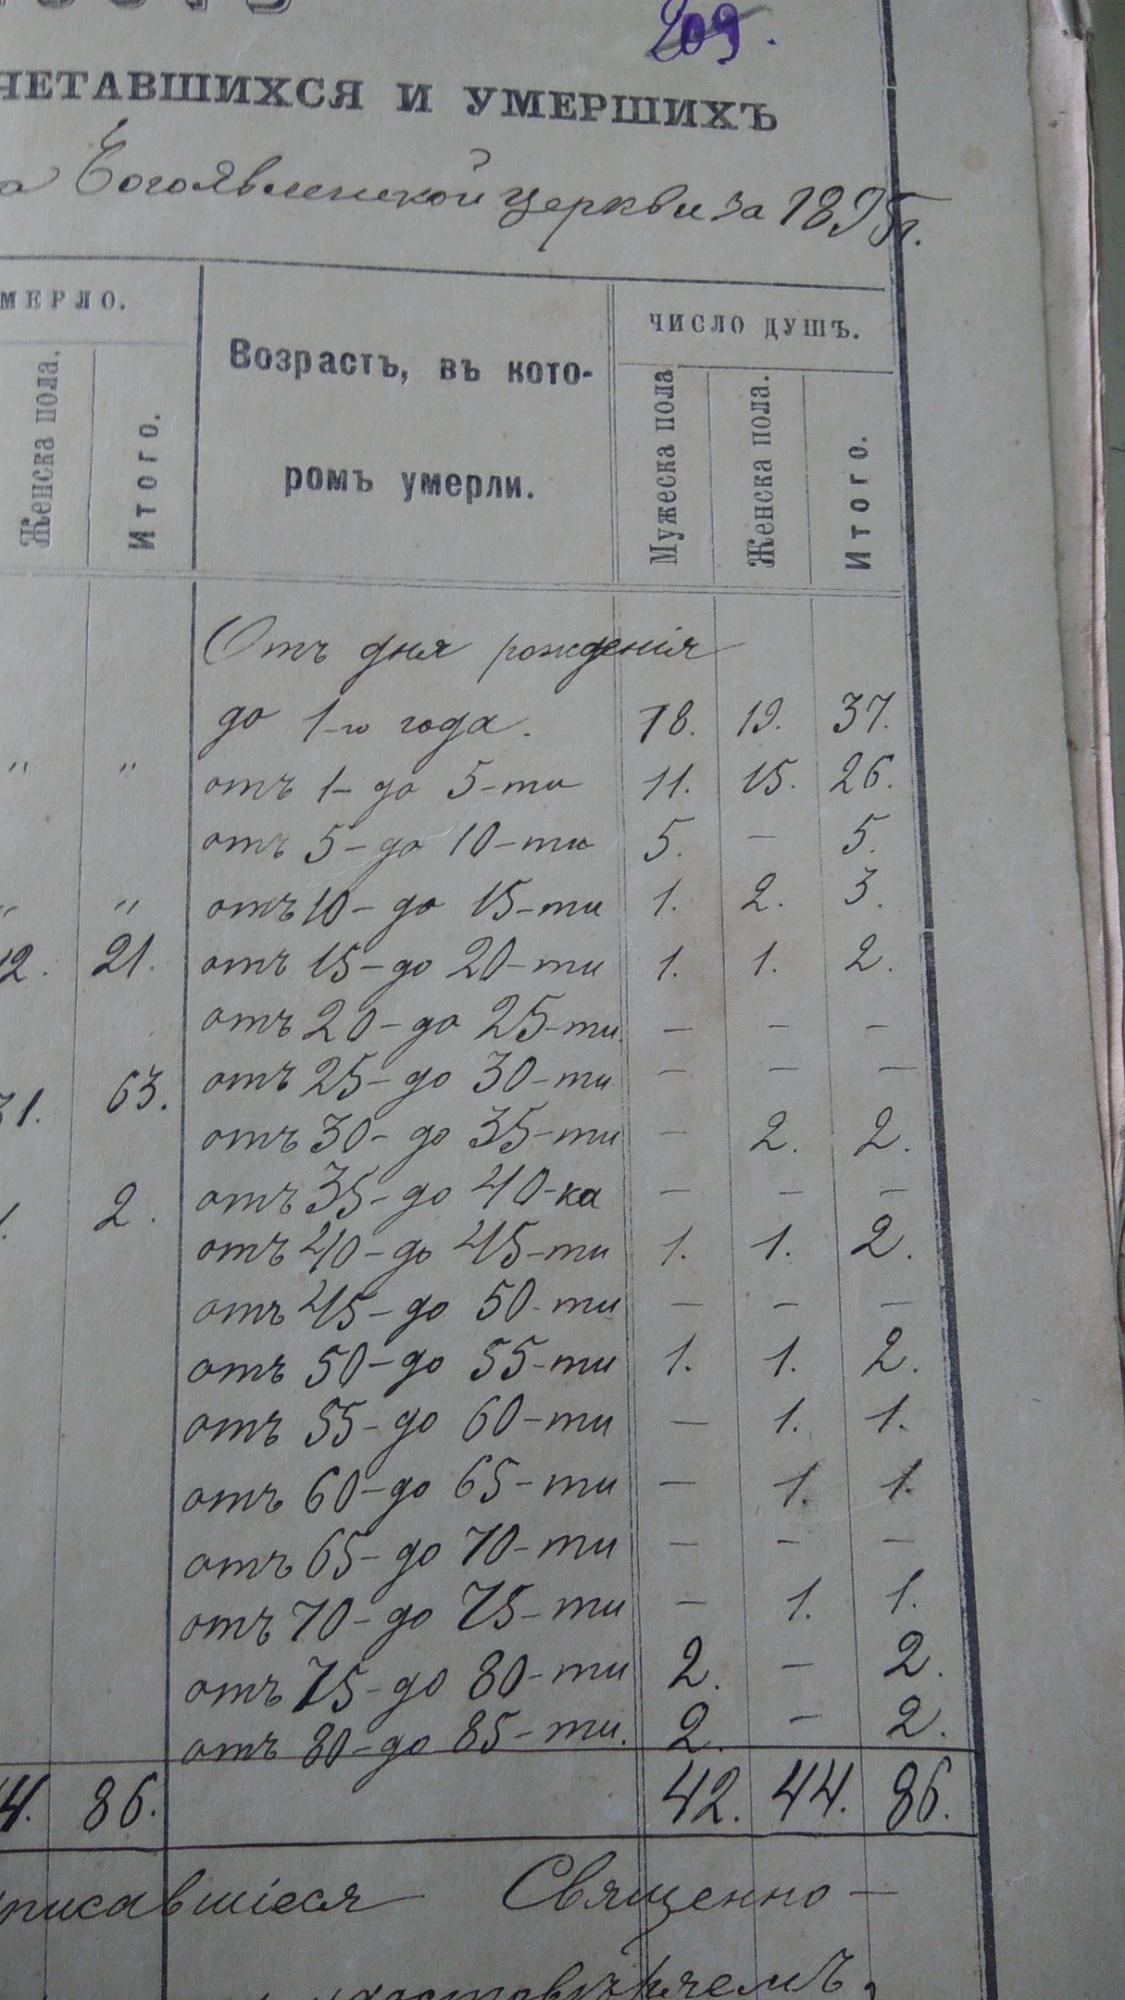 209.
ЧЕТАВШИХСЯ И УМЕРШИХЪ
Богоявленской церкви за 1895 г.
МЕРЛО.
Женска пола.
Итого.
Возрастъ, въ кото-
ромъ умерли.
ЧИСЛО ДУШЪ.
Мужеска пола
Женска пола.
Итого.
Отъ дня рожденія
до 1-го года. 18. 19. 37.
" " отъ 1- до 5-ти 11. 15. 26.
отъ 5- до 10-ти 5. — 5.
" " отъ 10- до 15-ти 1. 2. 3.
12. 21. отъ 15- до 20-ти 1. 1. 2.
отъ 20- до 25-ти. — — —
31. 63. отъ 25- до 30-ти — — —
отъ 30- до 35-ти — 2. 2.
1. 2. отъ 35- до 40-ка — — —
отъ 40- до 45-ти 1. 1. 2.
отъ 45- до 50-ти — — —
отъ 50- до 55-ти 1. 1. 2.
отъ 55- до 60-ти — 1. 1.
отъ 60- до 65-ти — 1. 1.
отъ 65- до 70-ти — — —
отъ 70- до 75-ти — 1. 1.
отъ 75- до 80-ти 2. — 2.
отъ 80- до 85-ти. 2. — 2.
4. 86. 42. 44. 86.
писавшіеся Священно-